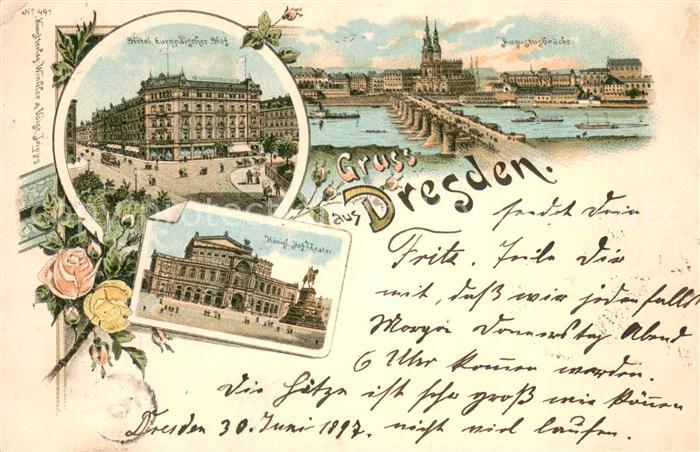 No 491
Kunstverlag Winkler & Voigt, Leipzig
Hôtel Europäischer Hof
Augustusbrücke.
Gruss
aus Dresden.
Königl. Hof-Theater.
sendet Dein
Fritz. Teile Dir
mit, daß wir jedenfalls
Morgen Donnerstag Abend
6 Uhr kommen werden.
Die Hitze ist sehr groß wir können
Dresden 30. Juni 1897. nicht viel laufen.